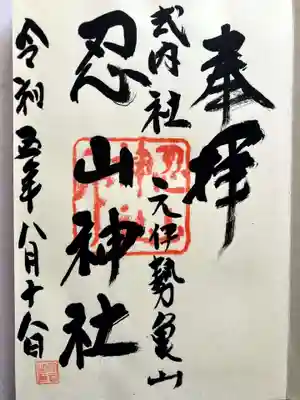 奉拝
式内社
元伊勢亀山
忍山神社
令和五年八月十八日